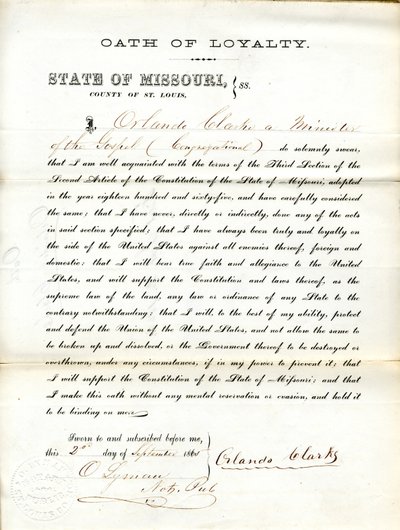 OATH OF LOYALTY.
STATE OF MISSOURI, } SS.
COUNTY OF ST. LOUIS,
I, Orlando Clarks a Minister
of the Gospel (Congregational) do solemnly swear,
that I am well acquainted with the terms of the Third Section of the
Second Article of the Constitution of the State of Missouri, adopted
in the year eighteen hundred and sixty-five, and have carefully considered
the same; that I have never, directly or indirectly, done any of the acts
in said section specified; that I have always been truly and loyally on
the side of the United States against all enemies thereof, foreign and
domestic; that I will bear true faith and allegiance to the United
States, and will support the Constitution and laws thereof, as the
supreme law of the land, any law or ordinance of any State to the
contrary notwithstanding; that I will, to the best of my ability, protect
and defend the Union of the United States, and not allow the same to
be broken up and dissolved, or the Government thereof to be destroyed or
overthrown, under any circumstances, if in my power to prevent it; that
I will support the Constitution of the State of Missouri; and that
I make this oath without any mental reservation or evasion, and hold it
to be binding on me.
Sworn to and subscribed before me,
this 2d day of September 1865
Orlando Clarks
O Lyman
Noty. Pub